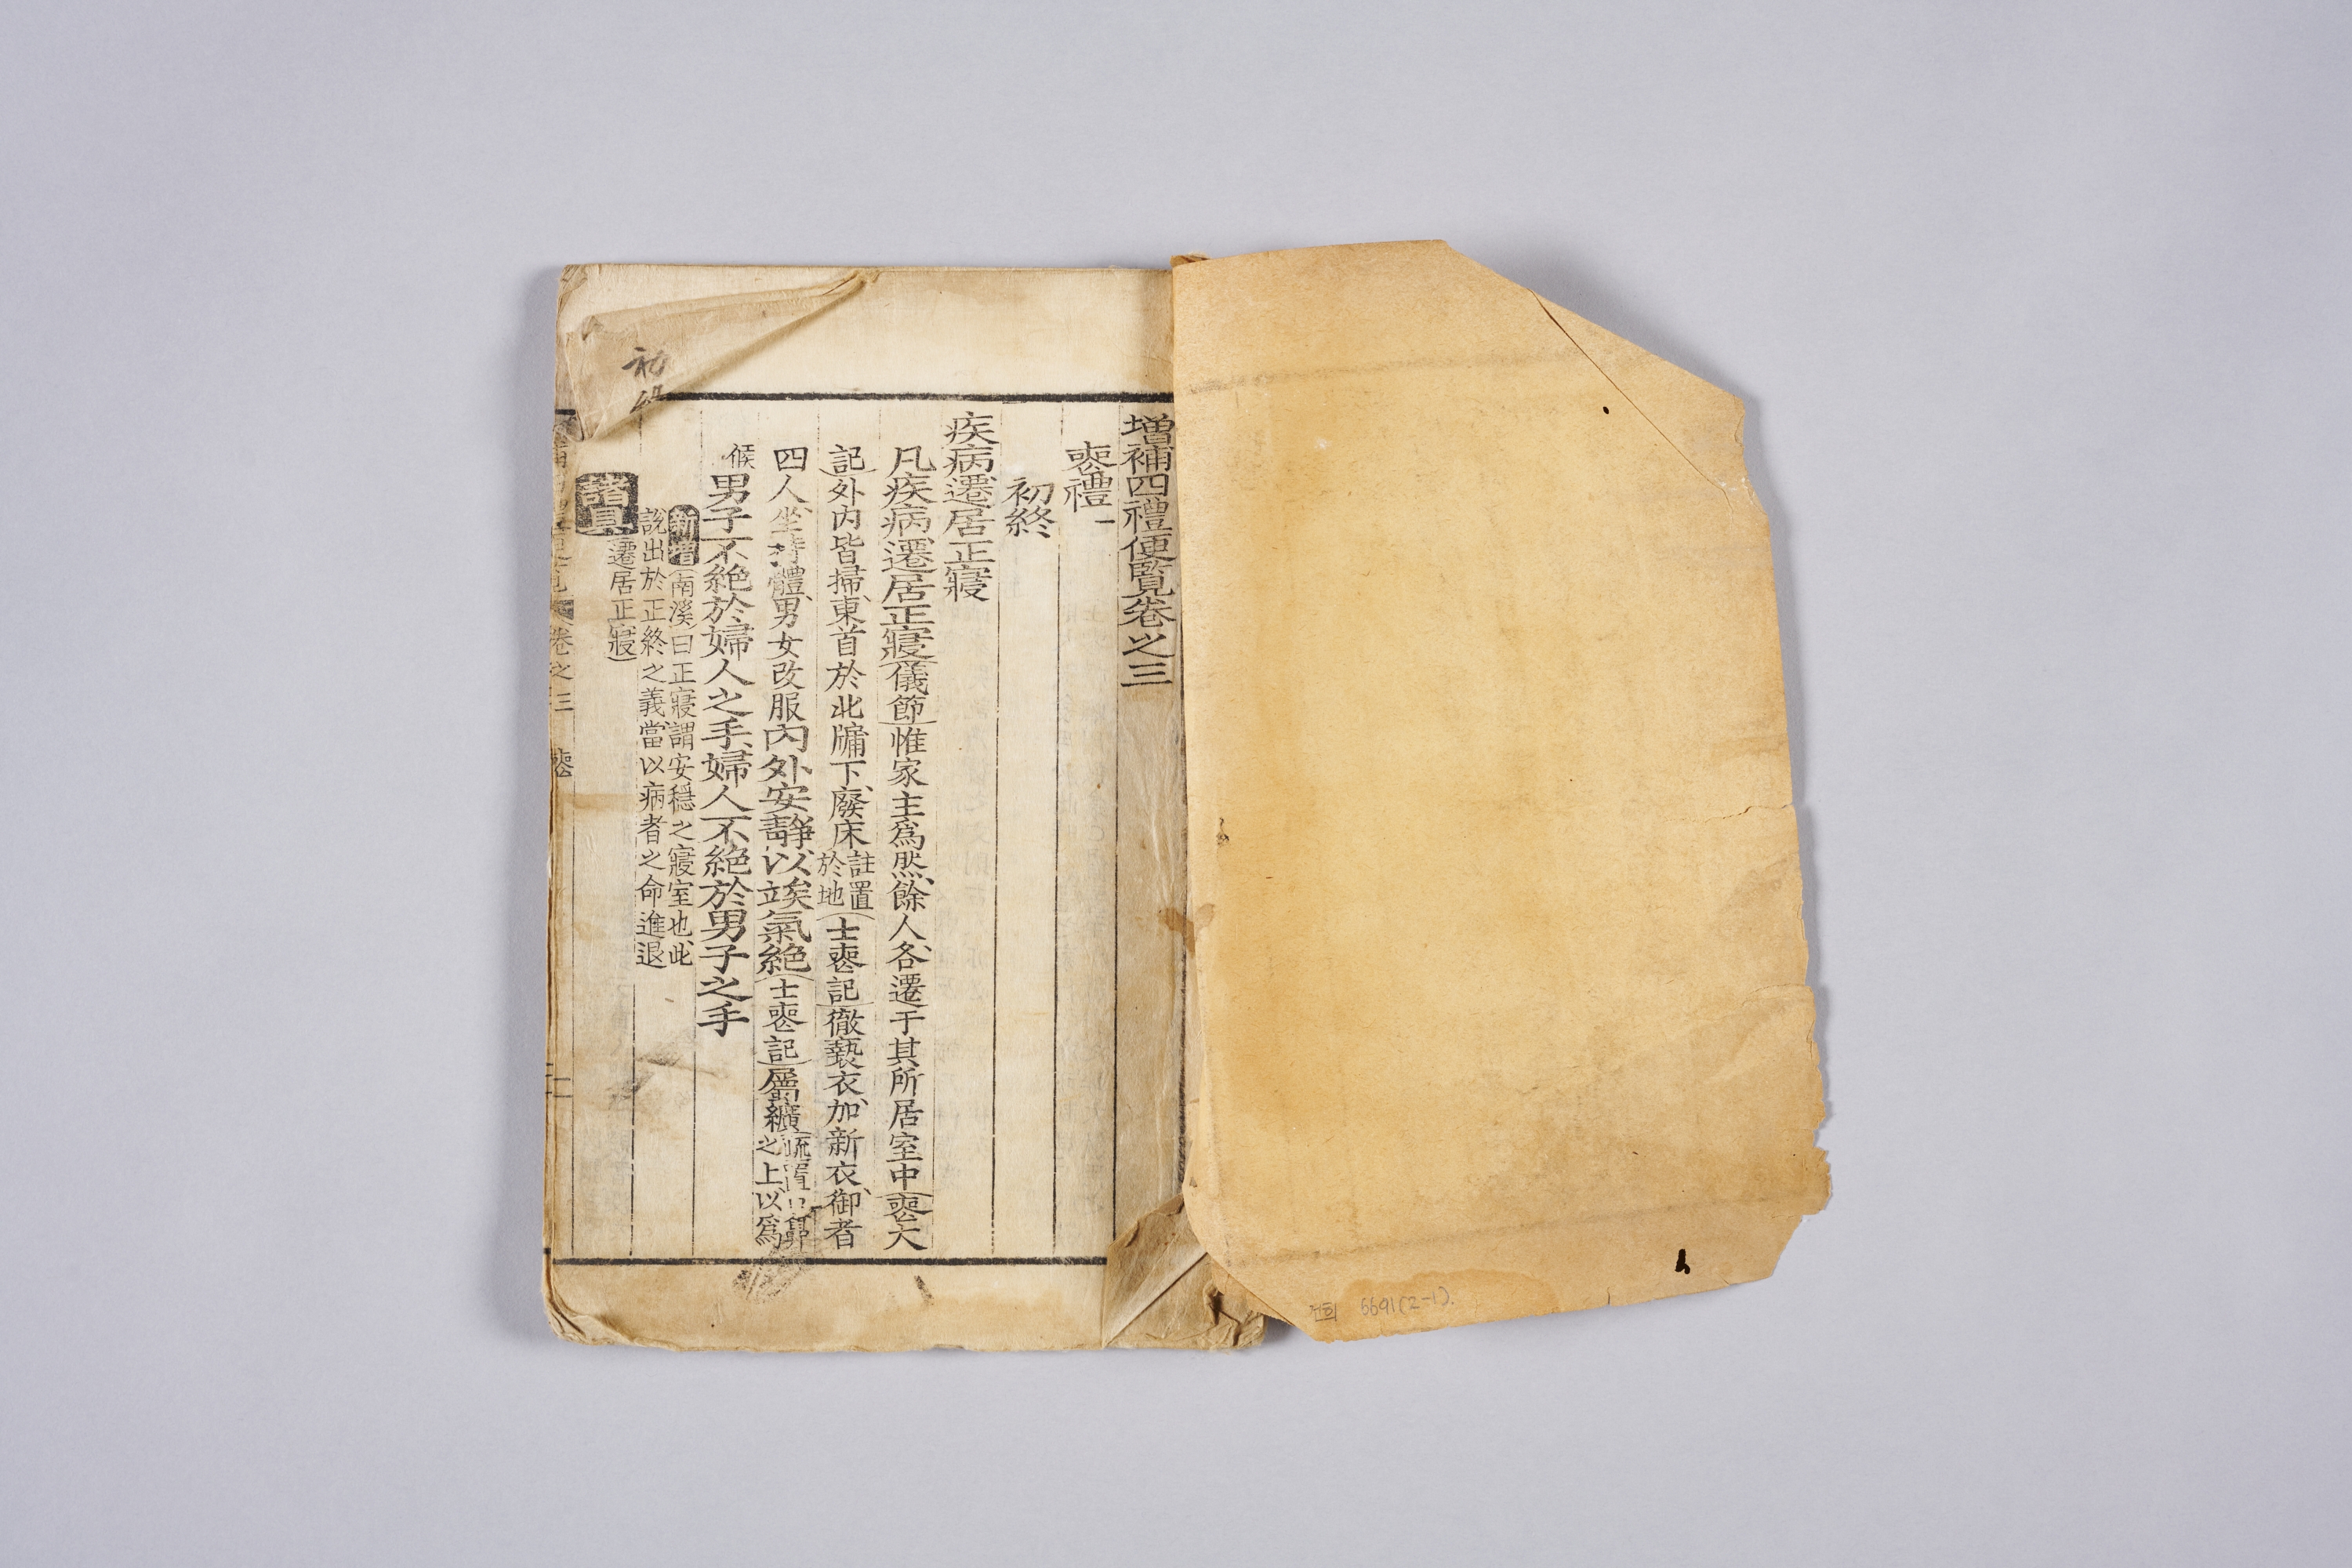 增補四禮便覽卷之三
喪禮一
初終
疾病遷居正寢
凡疾病遷居正寢(儀節)惟家主爲然餘人各遷于其所居室中(喪大
記)外內皆掃東首於北牖下廢床
註置
於地
(士喪記)徹褻衣加新衣御者
四人坐持體男女改服內外安靜以竢氣絶(士喪記)屬纊
之上以爲
候
男子不絶於婦人之手婦人不絶於男子之手
新增(南溪)曰正寢謂安穩之寢室也此
說出於正終之義當以病者之命進退
諸具(遷居正寢)
初
卷之三
喪
전희 6691(2-1).